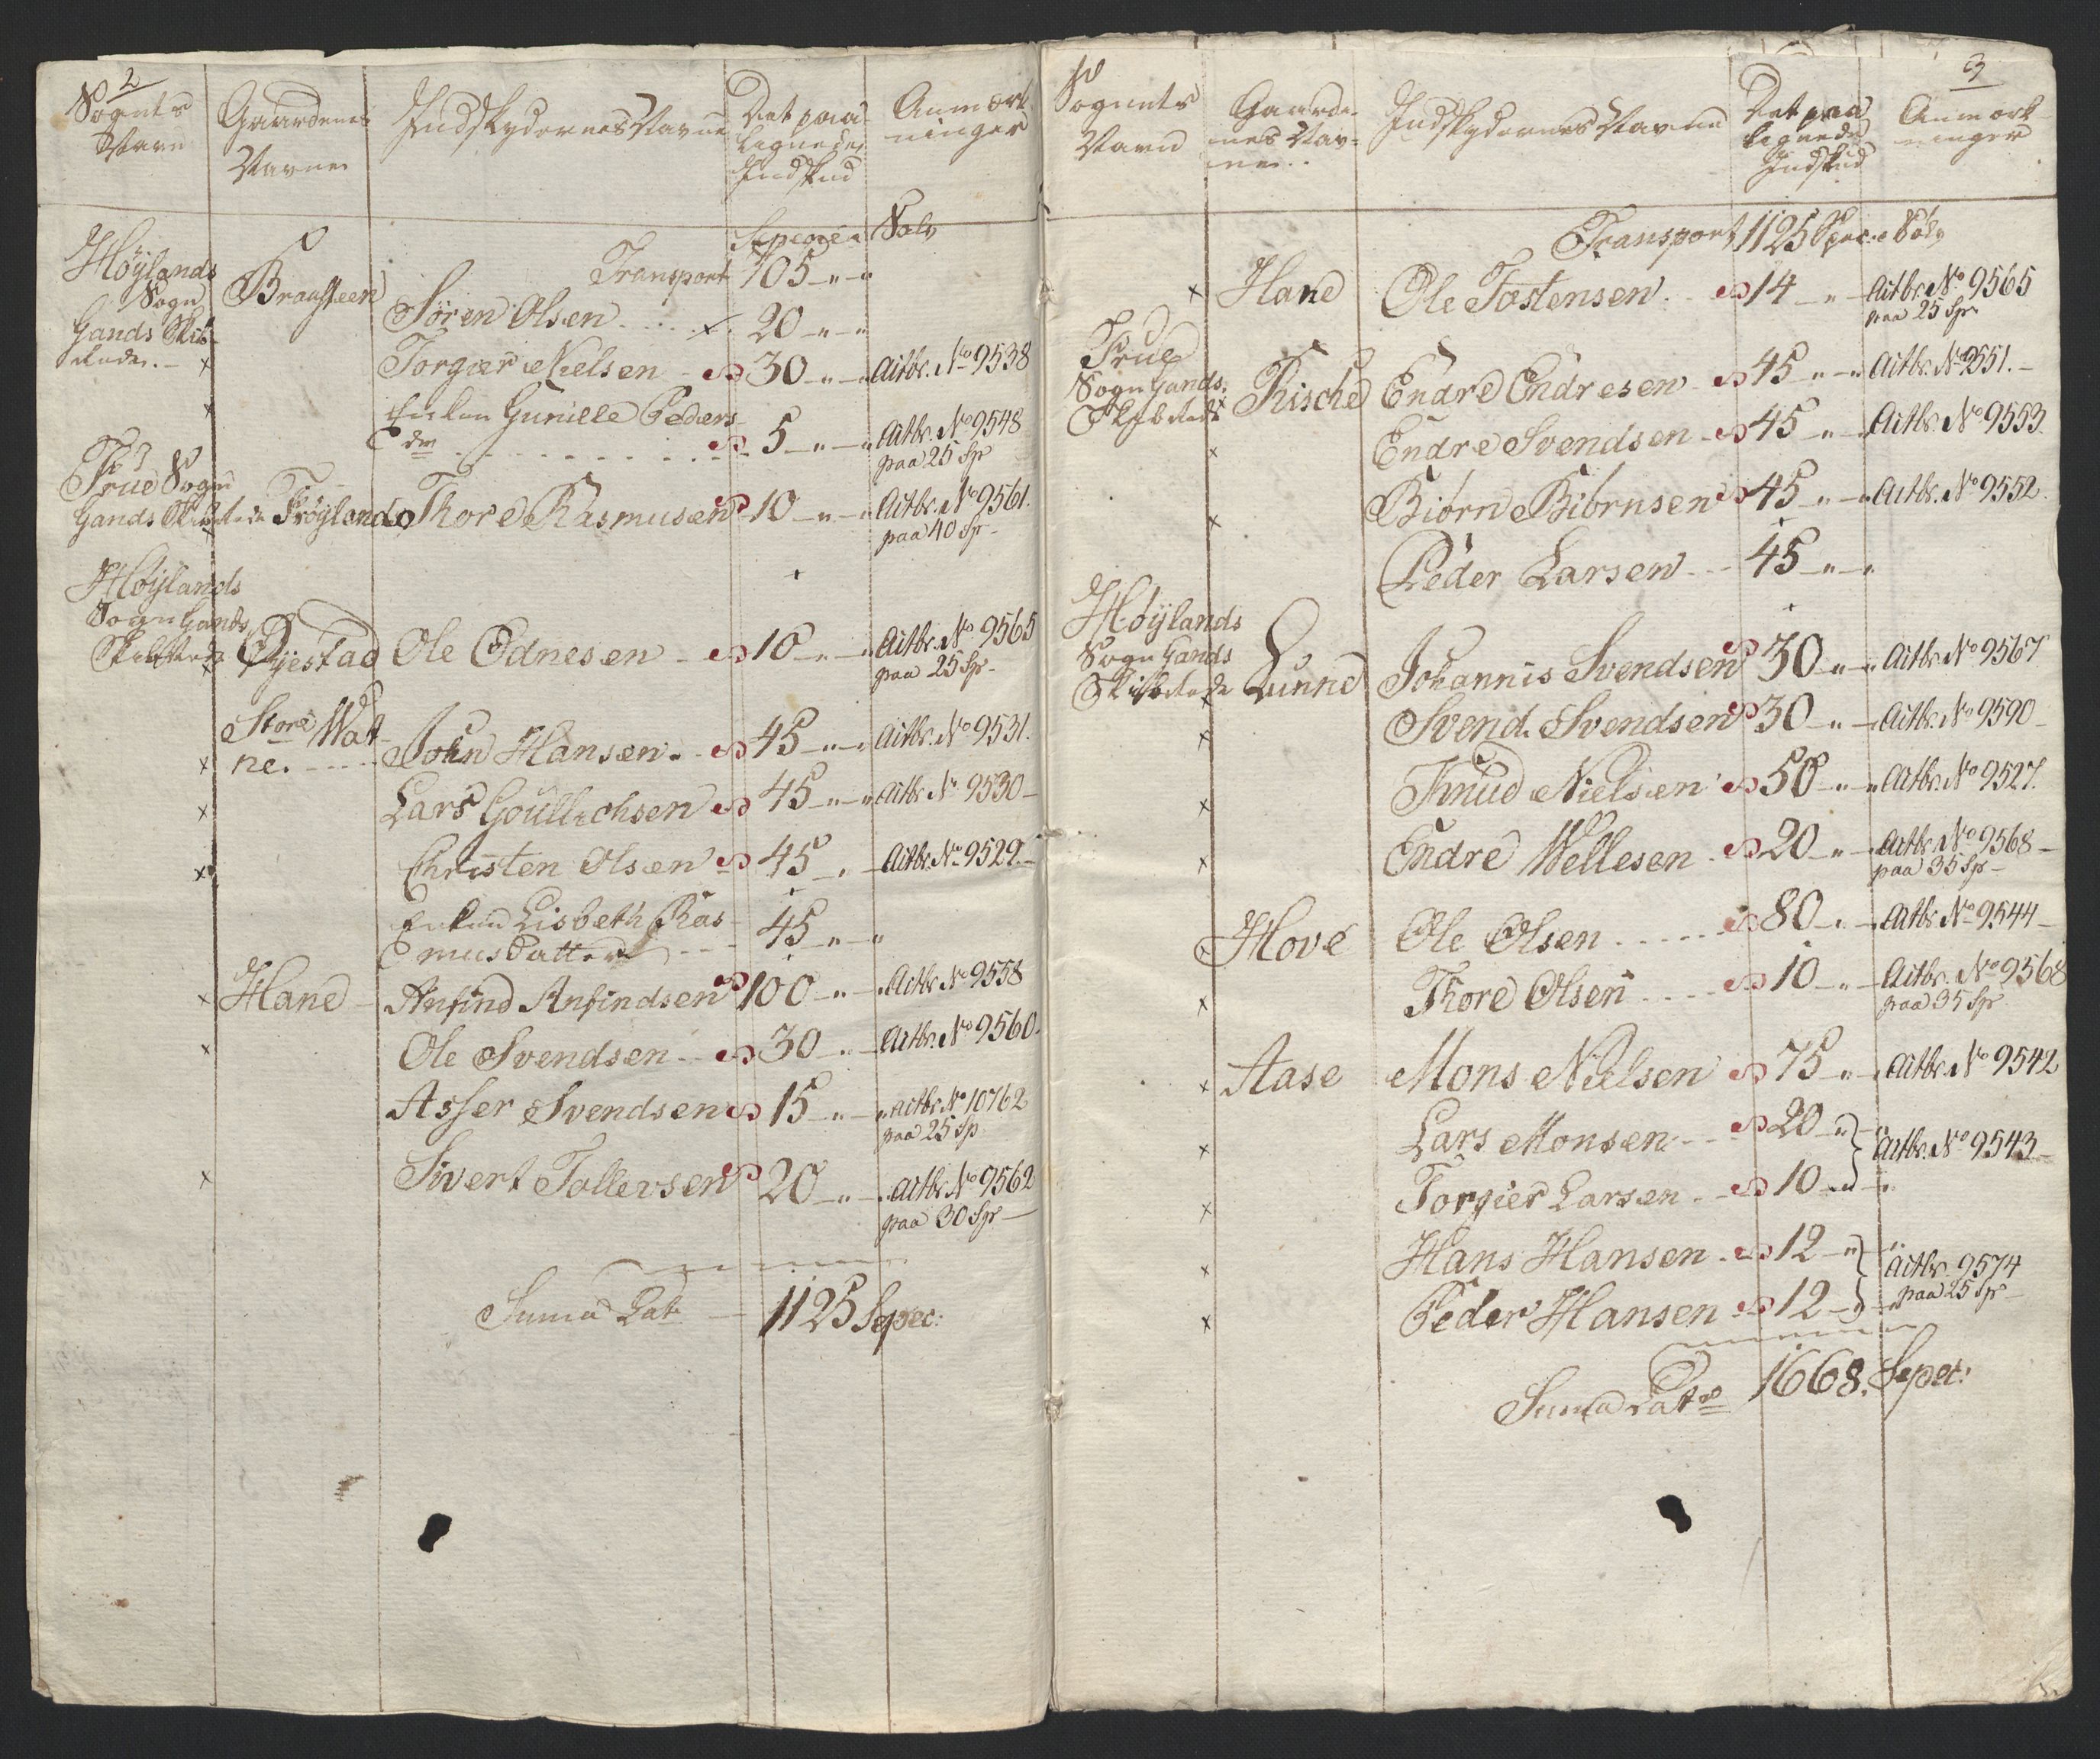 2
Sognets Navn | Gaardenes Navne | Indskydernes Navne | Det paalignede Indskud | Anmærkninger
Specie Sølv
Transport 705 " "
Høylands Sogn Gands Skibrede. Braasteen Søren Olsen 20 " "
x Torgier Nielsen 30 " " Aitbr. No 9538
x Enken Gunille Peders
dr 5 " " Aitbr. No 9548
paa 25 Sp
True Sogn
Gands Skibrede Frøyland Thore Rasmusen 10 " " Aitbr. No 9561.
paa 40 Sp
Høylands
Sogn Gands
Skibrede Øyestad Ole Ednesen 10 " " Aitbr. No 9565
paa 25 Sp
Store Wat
x ne. John Hansen 45 " " Aitbr. No 9531.
x Lars Goullichsen 45 " " Aitbr. No 9530
x Christen Olsen 45 " Aitbr. No 9529.
Enken Lisbeth Ras
mus Datter 45 " "
x Hane Anfind Anfindsen 100 " " Aitbr. No 9558
x Ole Svendsen 30 " " Aitbr. No 9560.
Asser Svendsen 15 " " Aitbr. No 10762
paa 25 Sp
x Sivert Tollevsen 20 " " Aitbr. No 9562
paa 30 Sp
Suma Lat 1125 Spec:
3
Sognets Navn | Gaardenes Navne | Indskydernes Navne | Det paalignede Indskud | Anmærkninger
Transport 1125 Spec. Sølv
x Hane Ole Tostensen 14 " Aitbr. No 9565
paa 25 Sp
True
Sogn Gands
Skibrede x Rische Endre Endresen 45 " " Aitbr. No 9551.
x Endre Svendsen 45 " " Aitbr. No 9553
x Biørn Biørnsen 45 " " Aitbr. No 9552.
Peder Larsen 45 " "
Høylands
Sogn Gands
Skibrede x Lunne Johannis Svendsen 30 " " Aitbr. No 9567
x Svend Svendsen 30 " " Aitbr. No 9590
x Knud Nielsen 50 " " Aitbr. No 9527.
x Endre Wellesen 20 " " Aitbr. No 9568
paa 35 Sp
x Hove Ole Olsen 80 " Aitbr. No 9544
x Thore Olsen 10 " " Aitbr. No 9568
paa 35 Sp
x Aase Mons Nielsen 75 " " Aitbr. No 9542
x Lars Monsen 20 " "
Aitbr. No 9543
x Torgier Larsen 10 " "
x Hans Hansen 12 " "
Aitbr. 9574
paa 25 Sp
x Peder Hansen 12 " "
Suma Lat 1668. Spec: